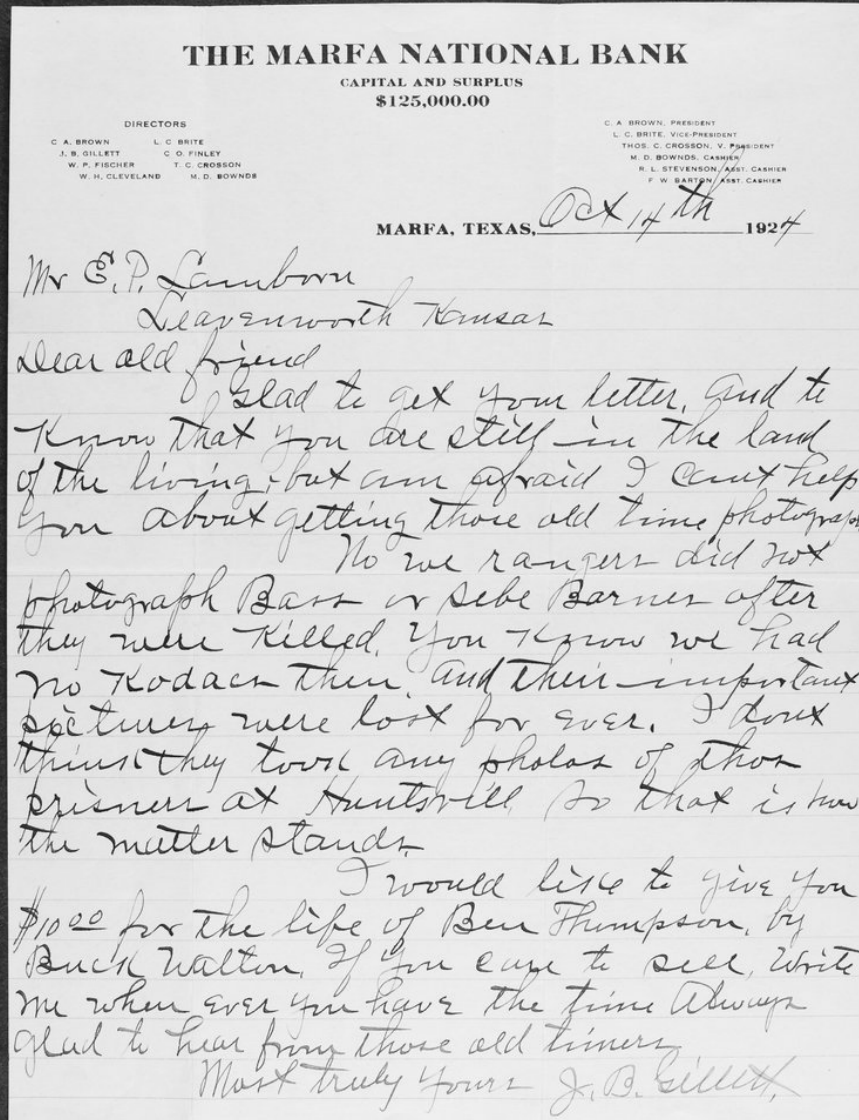 THE MARFA NATIONAL BANK
CAPITAL AND SURPLUS
$125,000.00
DIRECTORS
C A. BROWN L. C BRITE
J. B. GILLETT C O. FINLEY
W. P. FISCHER T. C. CROSSON
W. H. CLEVELAND M. D. BOWNDS
C. A BROWN, PRESIDENT
L. C. BRITE, VICE-PRESIDENT
THOS. C. CROSSON, V. PRESIDENT
M. D. BOWNDS, CASHIER
R. L. STEVENSON, ASST. CASHIER
F W BARTON, ASST. CASHIER
MARFA, TEXAS, Oct 14th 1924
Mr E. P. Lamborn
Leavenworth Kansas
Dear old friend
Glad to get your letter, and to
Know that you are still in the land
of the living, but am afraid I cant help
you about getting those old time photograph
No we rangers did not
photograph Bass or Sebe Barnes after
they were Killed. You Know we had
no Kodacs then, and their important
pictures were lost for ever. I dont
think they took any photos of thos
prisners at Huntsvill, so that is how
the matter stands.
I would like to give you
$10 00 for the life of Ben Thompson, by
Buck Walton, If you care to sell, Write
me when ever you have the time Always
glad to hear from those old timers
Most truly yours J. B. Gillett.